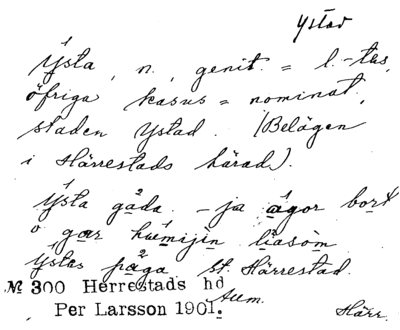 Ystad
Ýsta, n, genit. = l. -tas,
öfriga kasus = nominat,
staden Ystad. (Belägen
i Härrestads härad).
Ýsta gåda. - ja ågor bort
o gar húmijin liasòm
Ýstas fråga. st. Härrestad.
№ 300 Herrestads hd
Per Larsson 1901. Aum.
Härr.